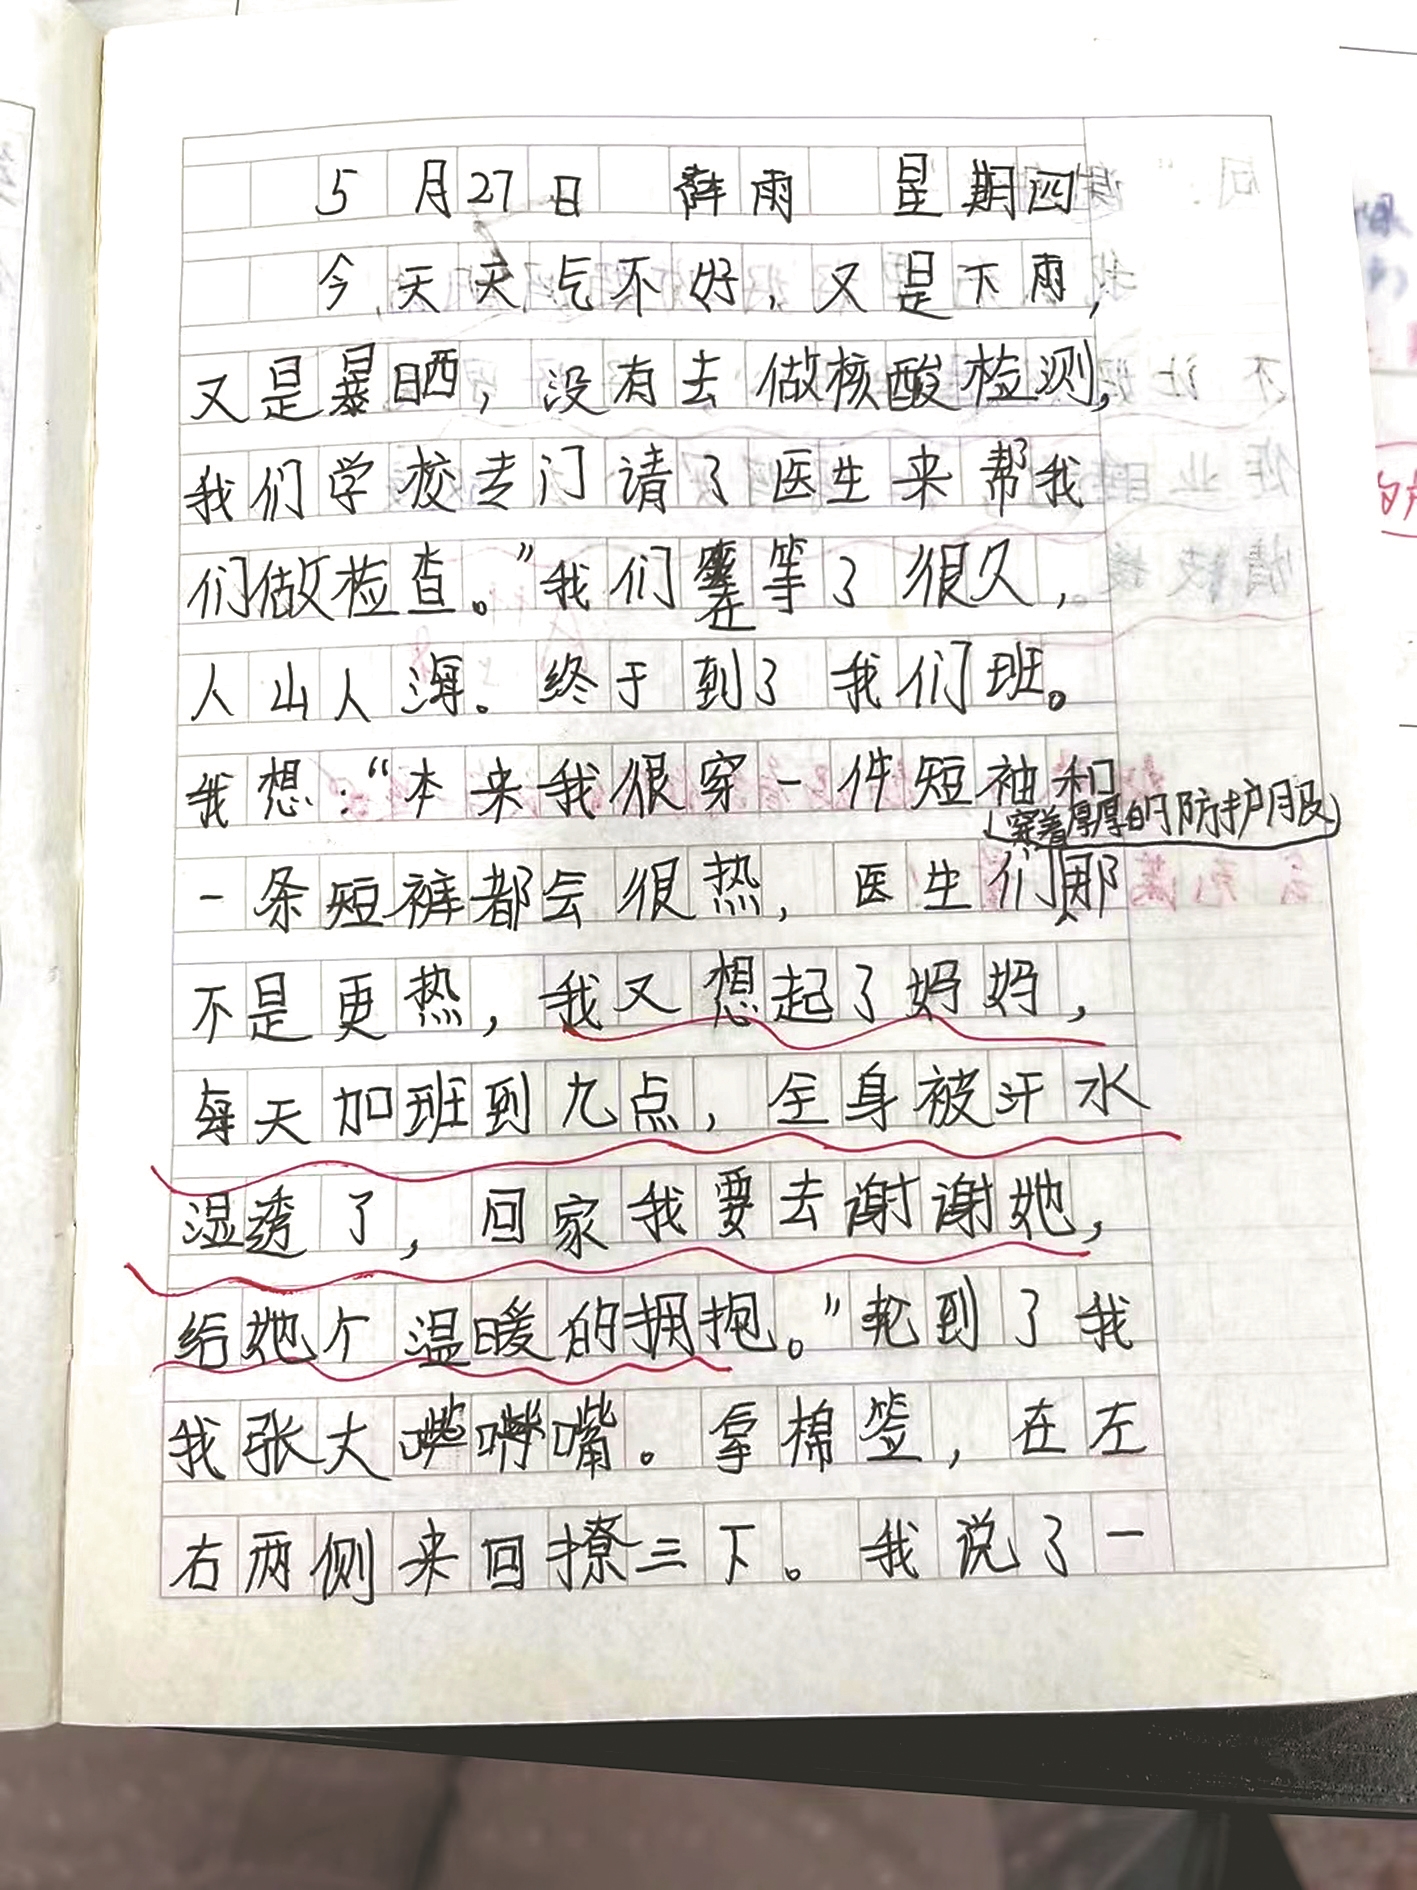 5月27日 阵雨 星期四
今天天气不好，又是下雨，
又是暴晒，没有去做核酸检测，
我们学校专门请了医生来帮我
们做检查。”我们在等了很久，
人山人海。终于到了我们班。
我想：“本来我很穿一件短袖和
穿着厚厚的防护服
一条短裤都会很热，医生们那
不是更热，我又想起了妈妈，
每天加班到九点，全身被汗水
湿透了，回家我要去谢谢她，
给她个温暖的拥抱。”轮到了我
我张大嘴。拿棉签，在左
右两侧来回撩三下。我说了一